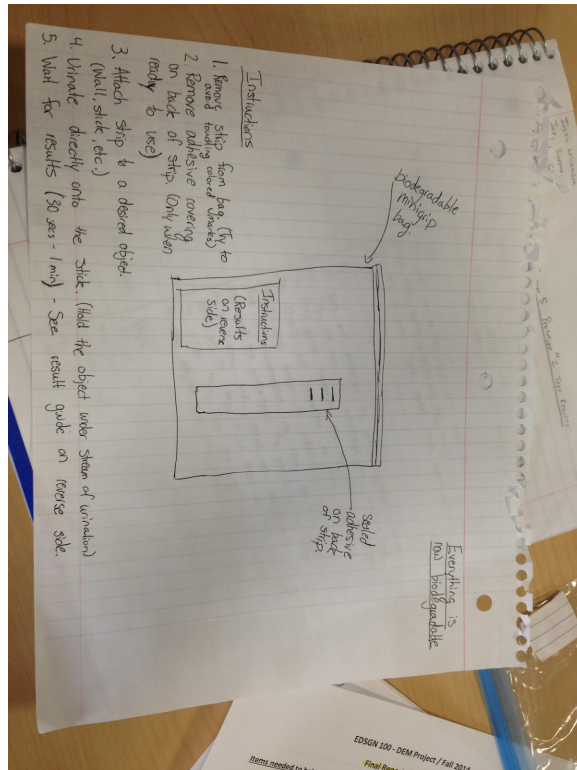 Everything is
now biodegradable
biodegradable
minigrip
bag.
Instructions
(Results
on reverse
side)
sealed
adhesive
on back
of strip.
Instructions
1. Remove strip from bag. (Try to
avoid touching colored
2. Remove adhesive covering
on back of strip. (Only when
ready to use)
3. Attach strip to a desired object.
(Wall, stick, etc.)
4. Urinate directly onto the stick. (Hold the object under stream of urination)
5. Wait for results (30 secs - 1 min) - See result guide on reverse side.
EDSGN 100 - DEM Project / Fall 201
Final Rep
Items needed to